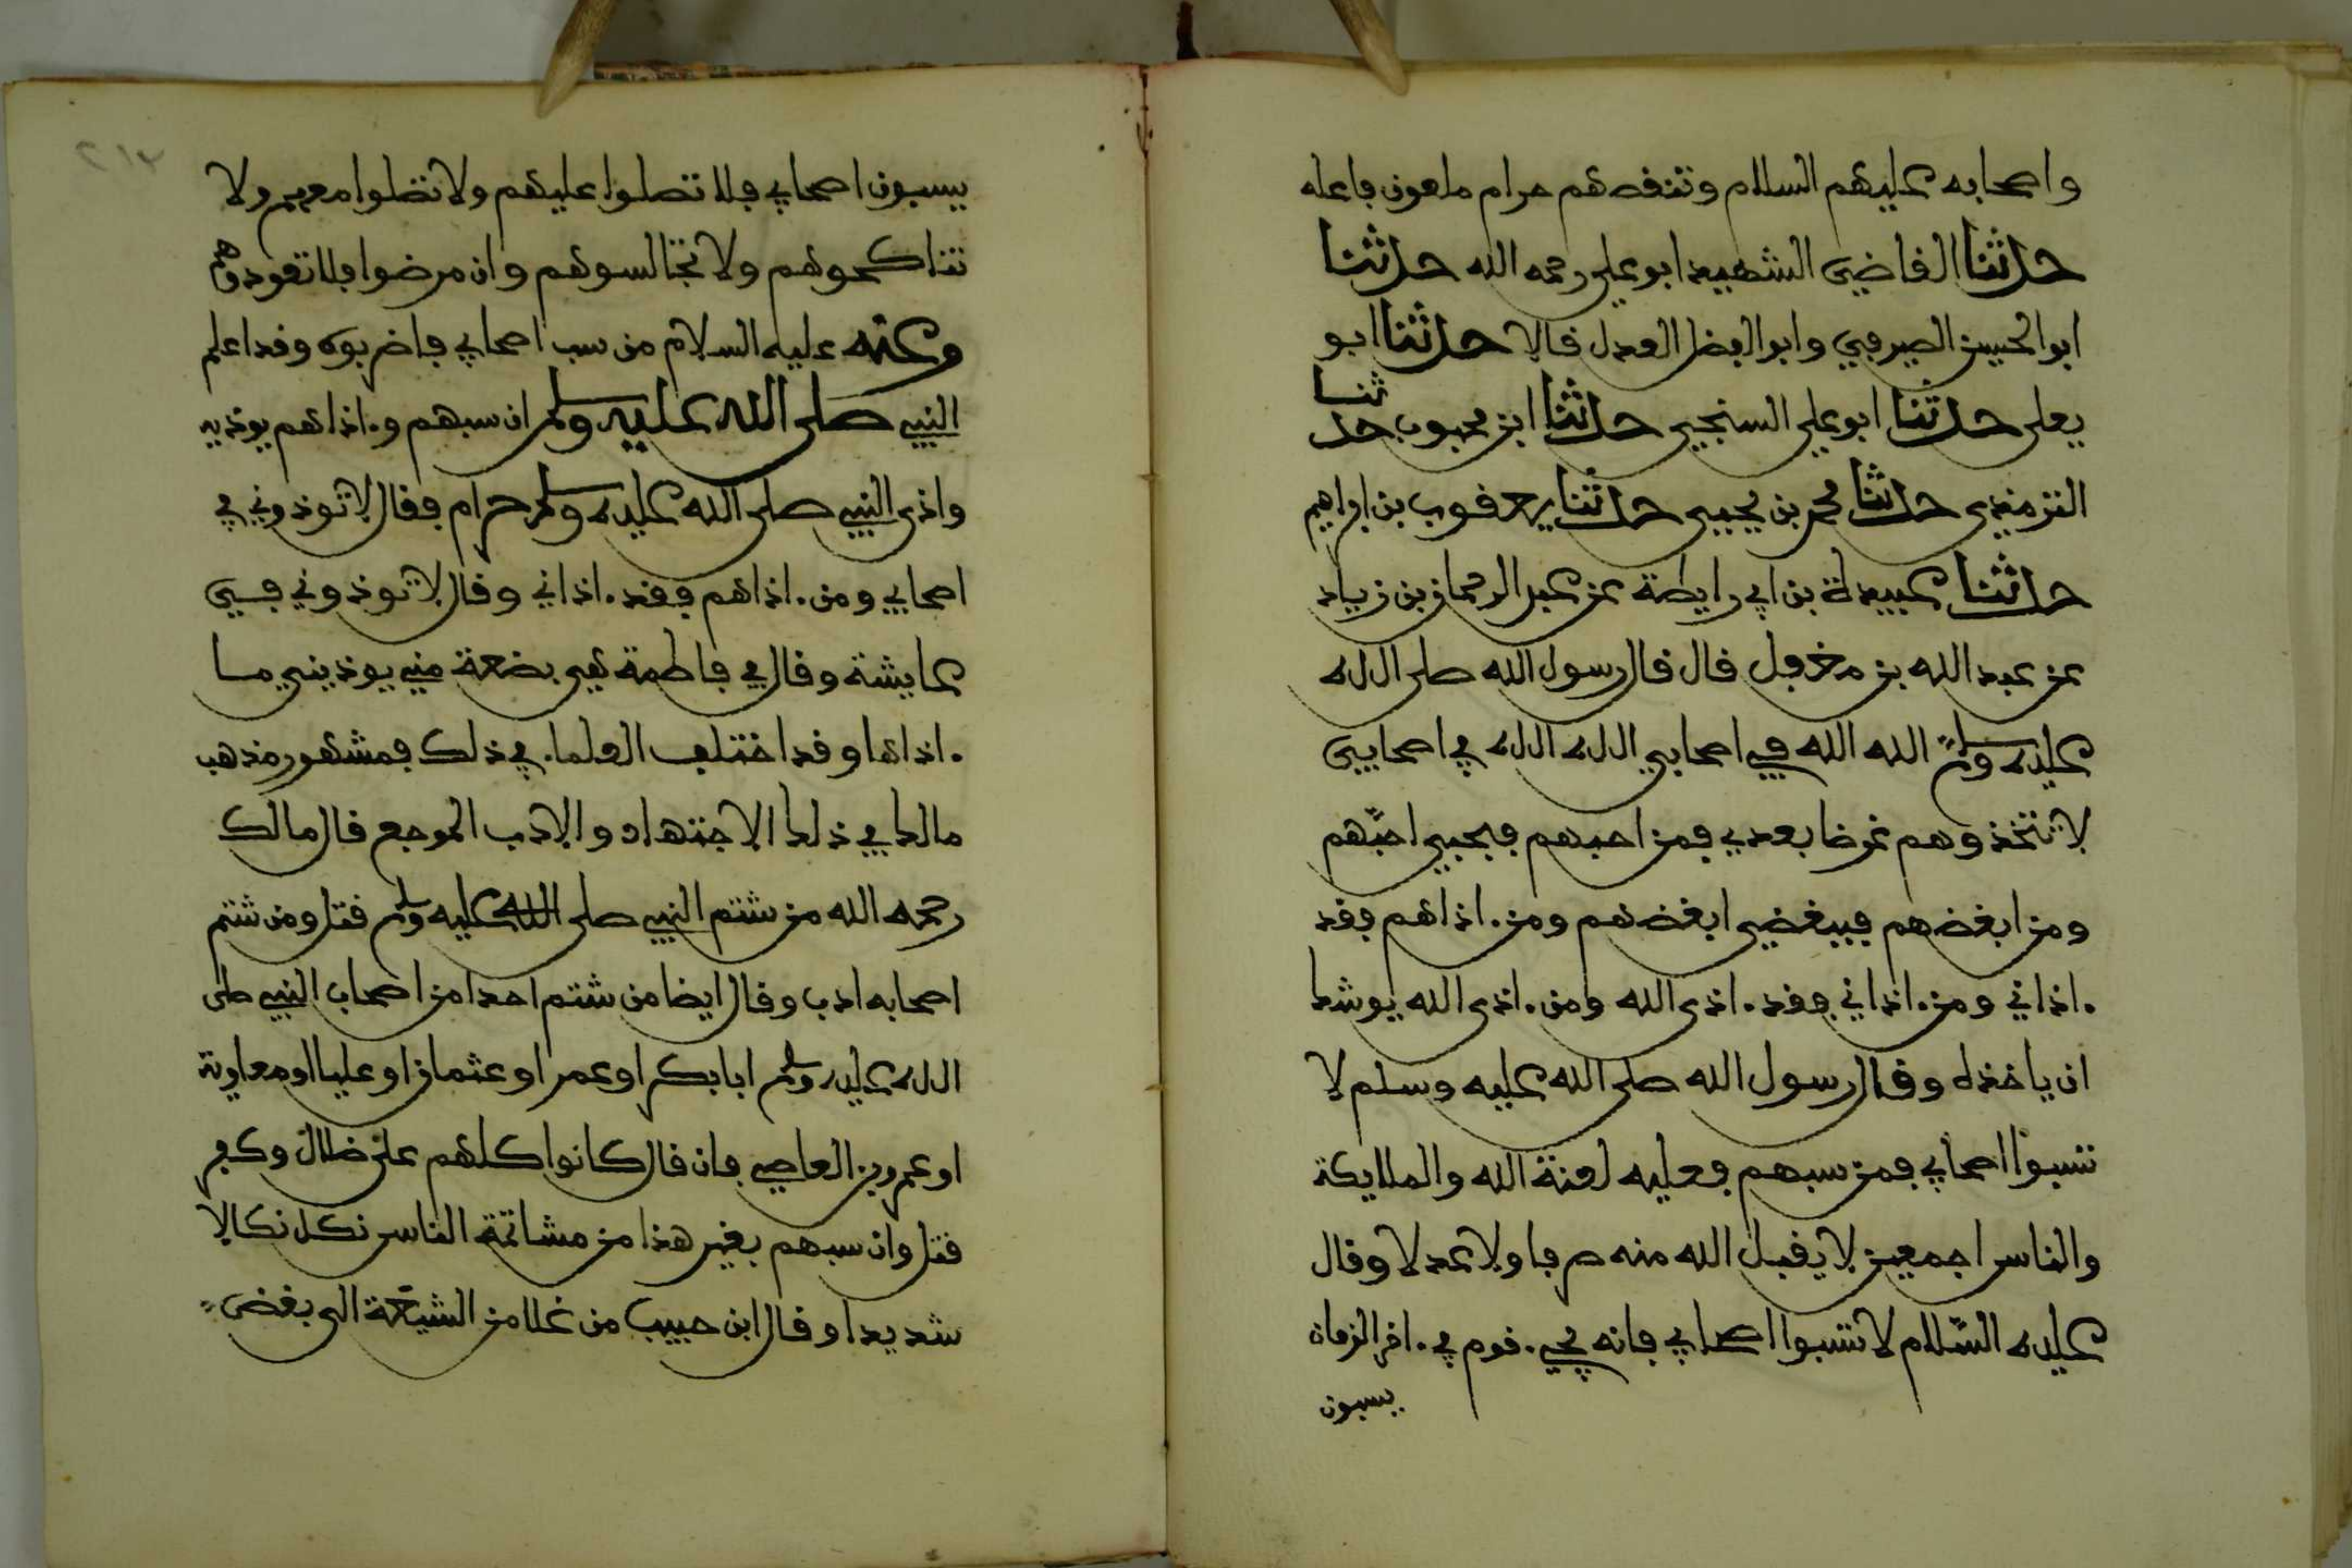 واصحابه عليهم السلام وتنقصهم حرام ملعون فاعله
حدثنا القاضي الشهيد ابو علي رحمه الله حدثنا
ابو الحسين الصيرفي وابو الفضل العدل قالا حدثنا ابو
يعلى حدثنا ابو علي السنجي حدثنا ابن محبوب حدثنا
الترمذي حدثنا محمد بن يحيى حدثنا يعقوب بن ابراهيم
حدثنا عبيدة بن ابي رايطة عن عبد الرحمان بن زياد
عن عبد الله بن مغفل قال قال رسول الله صلى الله
عليه وسلم الله الله في اصحابي الله الله في اصحابي
لا تتخذوهم غرضا بعدي فمن احبهم فبحبي احبهم
ومن ابغضهم فببغضي ابغضهم ومن اذاهم فقد
اذاني ومن اذاني فقد اذى الله ومن اذى الله يوشك
ان ياخذه وقال رسول الله صلى الله عليه وسلم لا
تسبوا اصحابي فمن سبهم فعليه لعنة الله والملايكة
والناس اجمعين لا يقبل الله منه صرفا ولا عدلا وقال
عليه السلام لا تسبوا اصحابي فانه يجيء قوم في اخر الزمان
يسبون
يسبون اصحابي فلا تصلوا عليهم ولا تصلوا معهم ولا
تناكحوهم ولا تجالسوهم وان مرضوا فلا تعودوهم
وعنه عليه السلام من سب اصحابي فاضربوه وقد اعلم
النبي صلى الله عليه وسلم ان سبهم واذاهم يوذيه
واذى النبي صلى الله عليه وسلم حرام فقال لا توذوني في
اصحابي ومن اذاهم فقد اذاني وقال لا توذوني في
عايشة وقال في فاطمة هي بضعة مني يوذيني ما
اذاها وقد اختلف العلما في ذلك فمشهور مذهب
مالك في ذلك الاجتهاد والادب الموجع قال مالك
رحمه الله من شتم النبي صلى الله عليه وسلم قتل ومن شتم
اصحابه ادب وقال ايضا من شتم احدا من اصحاب النبي صلى
الله عليه وسلم ابا بكر او عمر او عثمان او عليا او معاوية
او عمرو بن العاصي فان قال كانوا كلهم على ضلال وكفر
قتل وان سبهم بغير هذا من مشاتمة الناس نكل نكالا
شديدا وقال ابن حبيب من غلا من الشيعة الى بغض